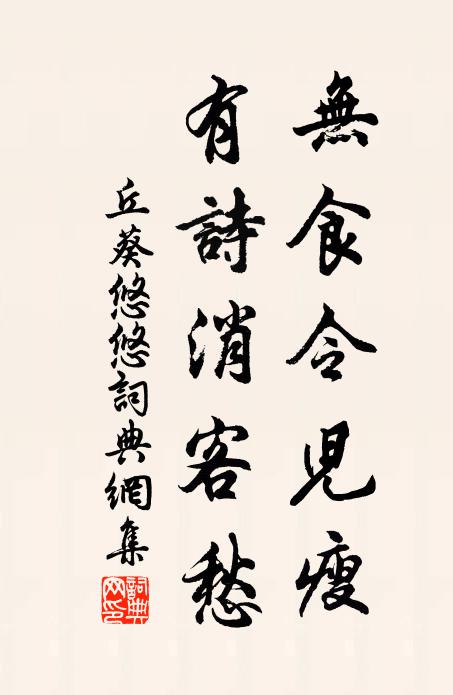 無食令兒瘦
有詩消客愁
丘葵悠悠詞典網集
詞典
网印